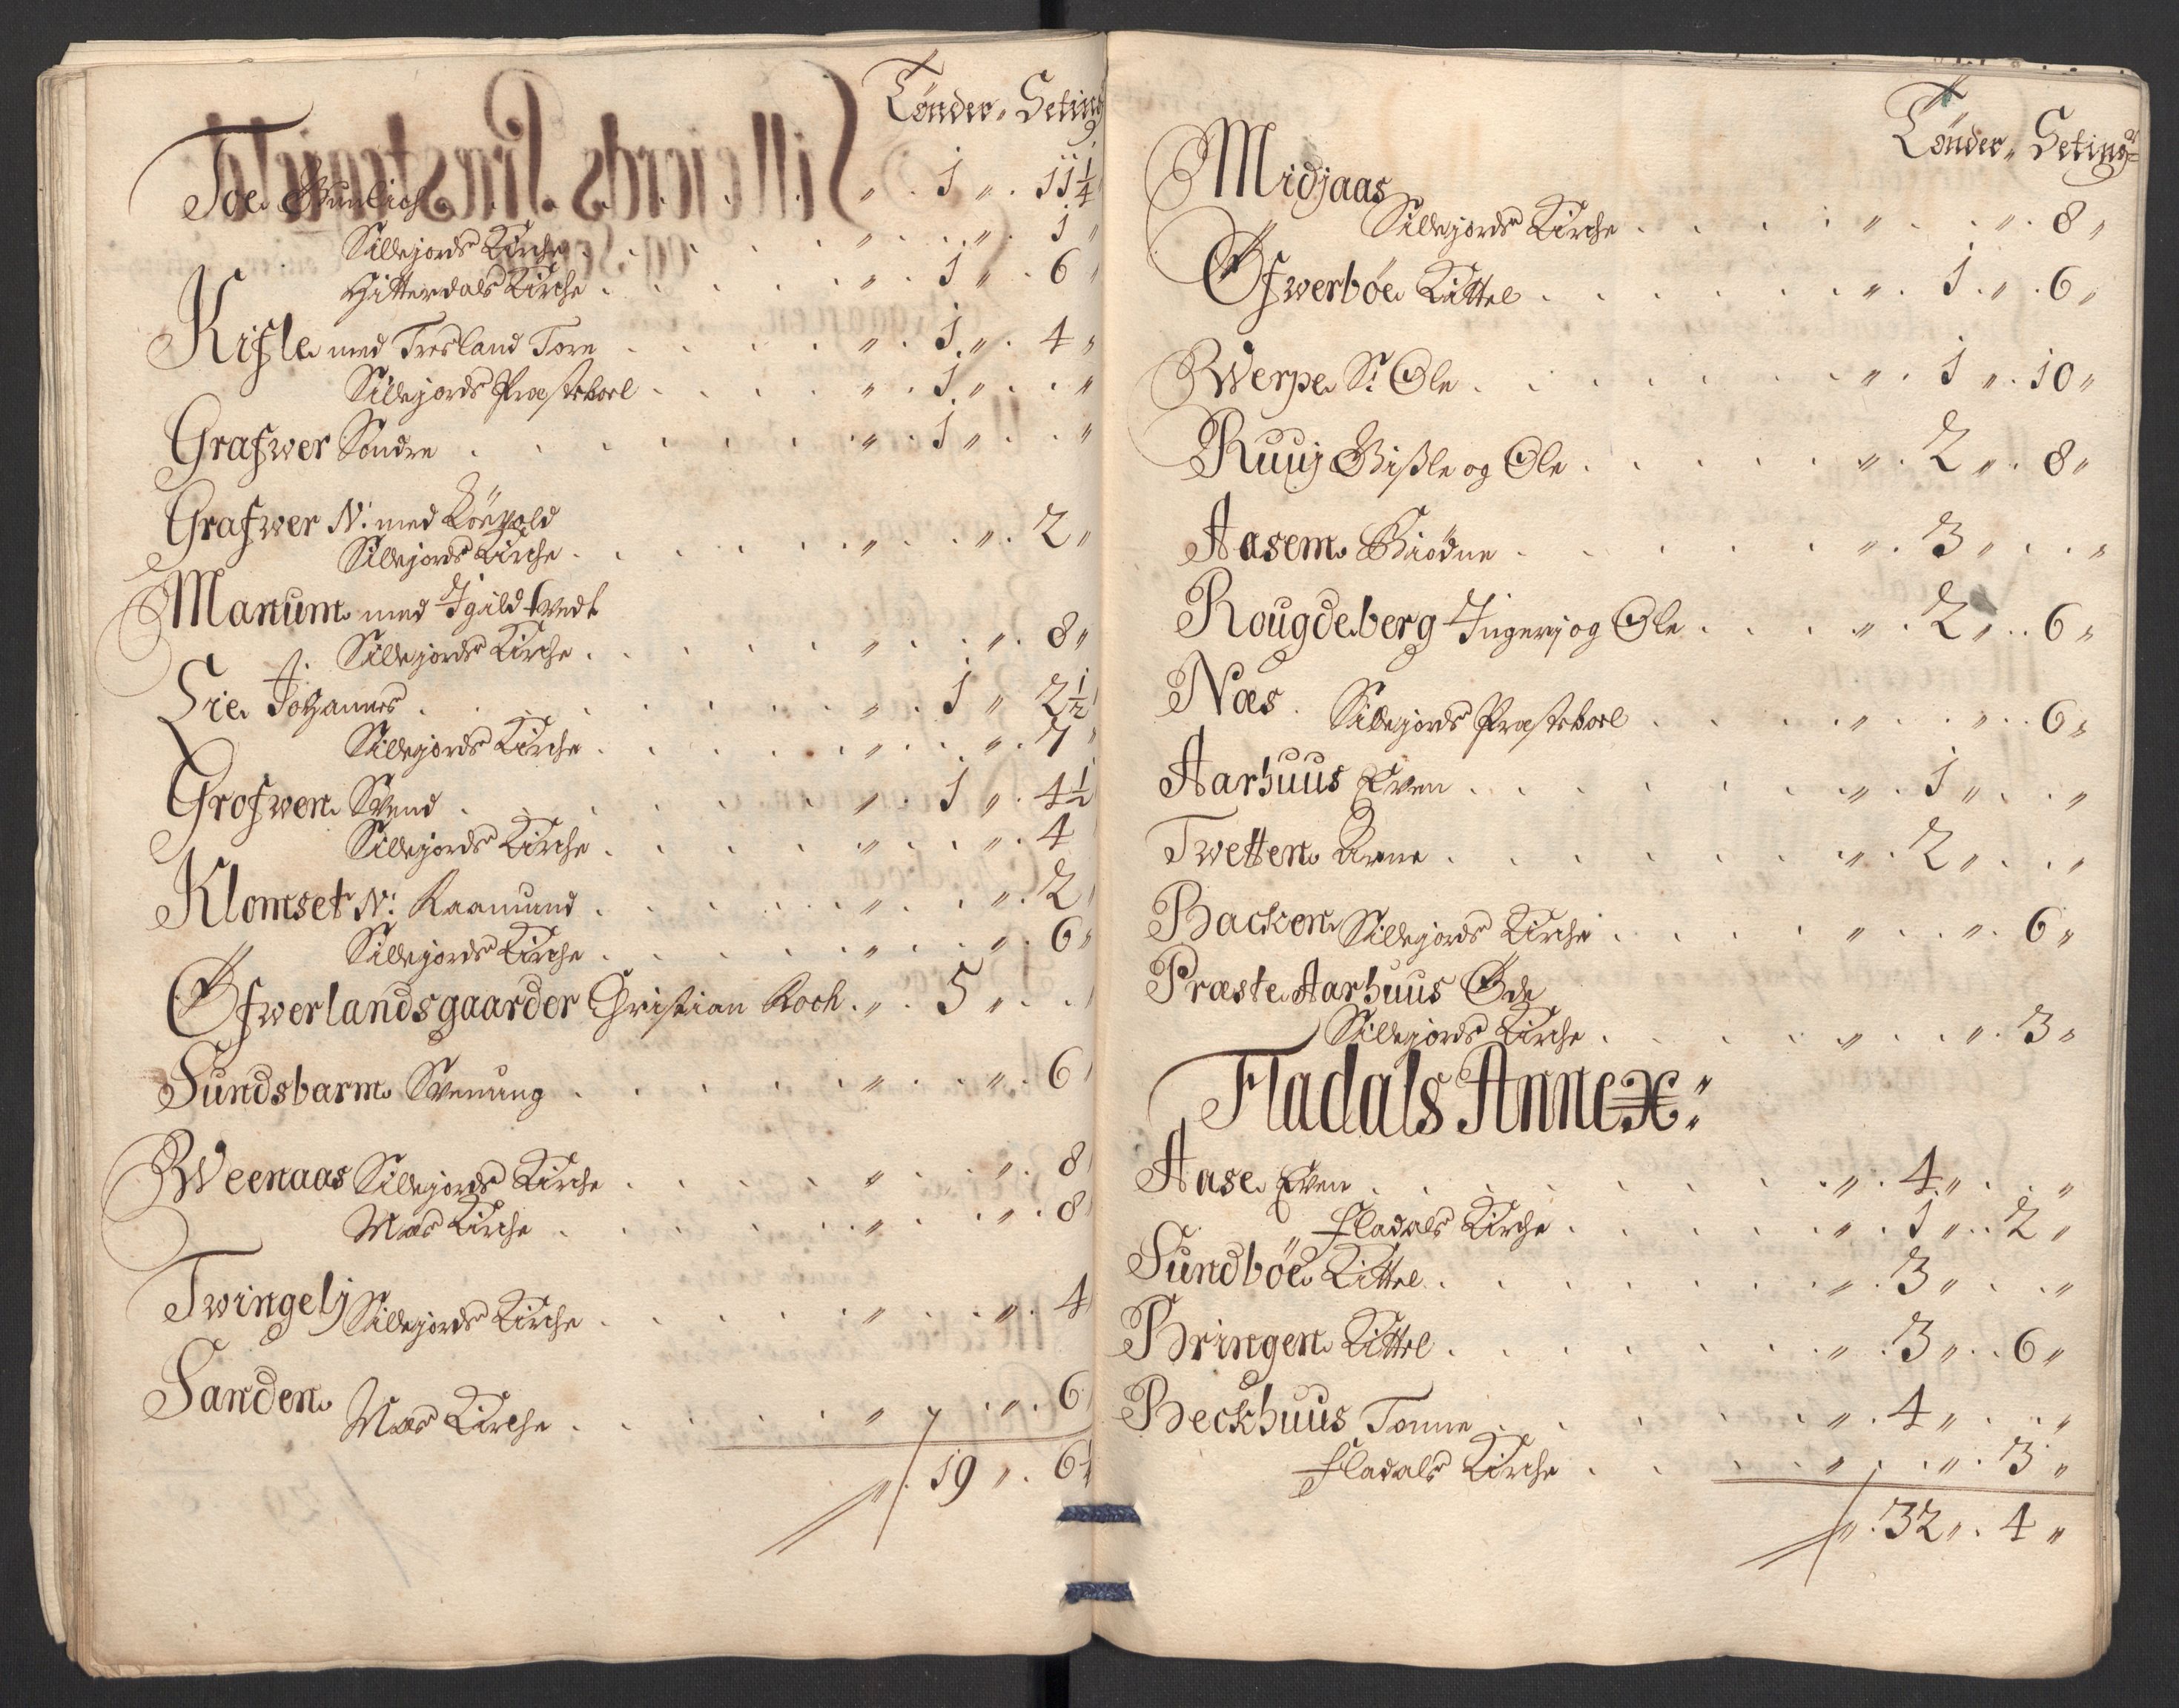 Tönder „ Seting
Toe Gunlich . . . . . . „ . 1 „ . 11 1/4
Sillejords Kirche . . . . . „ . . „ . 1 „
Hitterdals Kirche . . . . . „ . 1 „ . 6 „
Kisle med Tresland Tore . . . . „ . 1 „ . 4 „
Sillejords Præsteboel . . . . „ . 1 „ . . „
Grafwer Söndre . . . . . . „ . 1 „ . . „
Grafwer N: med
Sillejords Kirche . . . . . „ . . „ . 2 „
Manum med Igildtvedt
Sillejords Kirche . . . . . „ . . „ . 8 „
Lie Johannes . . . . . . „ . 1 „ 2 1/2
Sillejords Kirche . . . . . „ . . „ . 7 „
Grofwen Svend . . . . . . „ . 1 „ . 4 1/2
Sillejords Kirche . . . . . „ . . „ . 4
Klomset N: Raamund . . . . „ . . „ . 2
Sillejords Kirche . . . . . „ . . „ . 6 „
Öfwerlandsgaarder Christian Koch . „ . 5 „ . .
Sundsbarm Svenung . . . . . „ . . „ . 6
Weenaas Sillejords Kirche . . . . „ . . „ . 8
Mæs Kirche . . . . . „ . . „ . 8
Twingelj Sillejords Kirche . . . . „ . . „ . 4
Sanden
Mæs Kirche . . . . . „ . . „ . 6
„ . 19 „ . 6 1/4
Tönder „ Seting
Midjaas
Sillejords Kirche . . . . „ . . „ . 8 „
Öfwerböe Kittel . . . . . . „ . 1 „ . 6 „
Werpe S: Ole . . . . . . „ . 1 „ . 10 „
Ruuj Gisle og Ole . . . . . „ . 2 „ . 8 „
Aasem Giödne . . . . . „ . 3 „ . . „
Rougdeberg Ingerj og Ole . . . „ . 2 „ . . 6 „
Næs . Sillejords Præsteboel . . . . „ . . „ . . 6 „
Aarhuus Even . . . . . . „ . 1 „ . . „
Twetten Arne . . . . . . „ . 2 „ . . „
Backen Sillejords Kirche . . . . „ . . „ . 6 „
Præste Aarhuus Öde
Sillejords Kirche . . . . . „ . . „ . 3 „
Fladals Annex:
Aase Even . . . . . . . „ . 4 „ . . „
Fladals Kirche . . . . . „ . 1 „ . . 2 „
Sundböe Kittel . . . . . . „ . 3 „ . . „
Bringen Kittel . . . . . . „ . 3 „ . . 6 „
Beckhuus Tonne . . . . . . „ . 4 „ . . „
Fladals Kirche . . . . . „ . . „ . 3 „
„ . 32 „ . 4 „